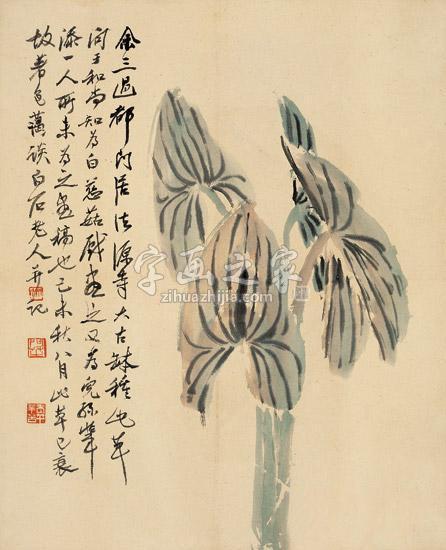 余三過都門居法源寺大古缽種此草
問王和尚知為白慈菇戲畫之又為兒孫輩
添一人所未為之畫稿也己未秋八月此草已衰
故色白石老人并記
字画之家
zihuazhijia.com